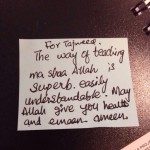 For Tajweed.
The way of teading
ma shaa Allah is
superb. easily
understandable. May
Allah give you health
and emaan. ameen.